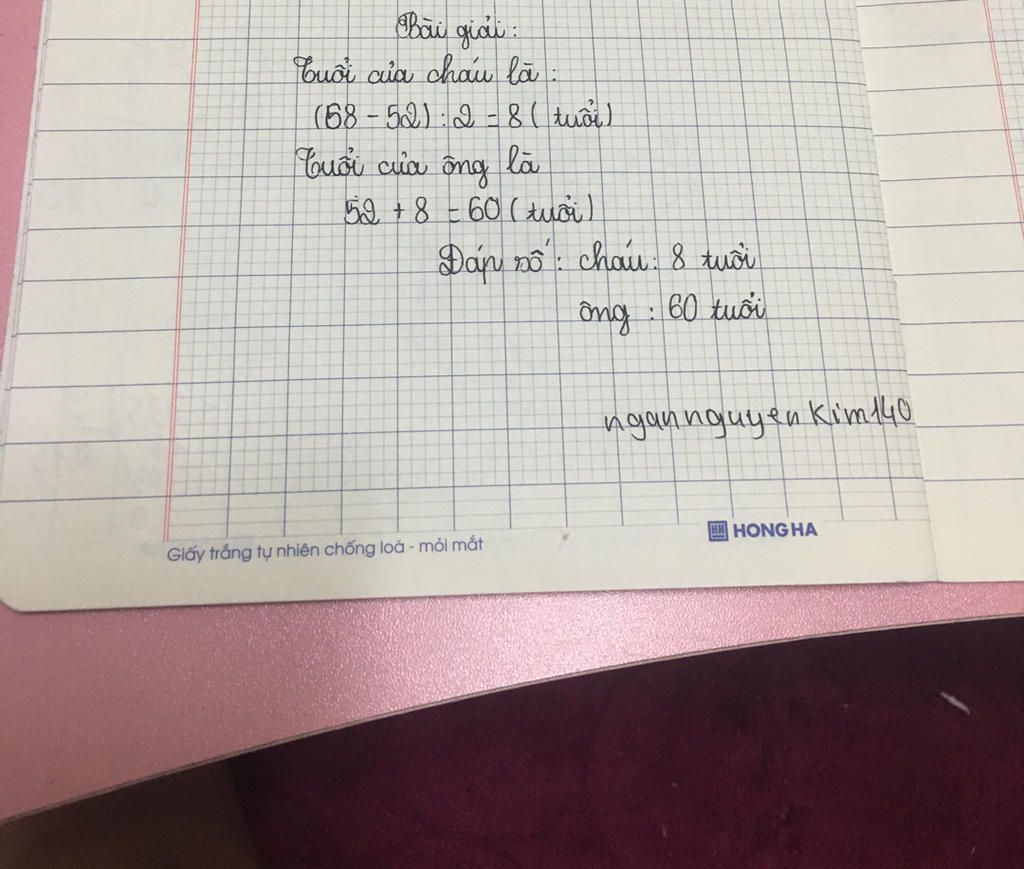 Bài giải:
Tuổi của cháu là:
(68 - 52) : 2 = 8 (tuổi)
Tuổi của ông là
52 + 8 = 60 (tuổi)
Đáp số: cháu: 8 tuổi
ông : 60 tuổi
ngannguyenkim140
HH HONG HA
Giấy trắng tự nhiên chống loá - mỏi mắt